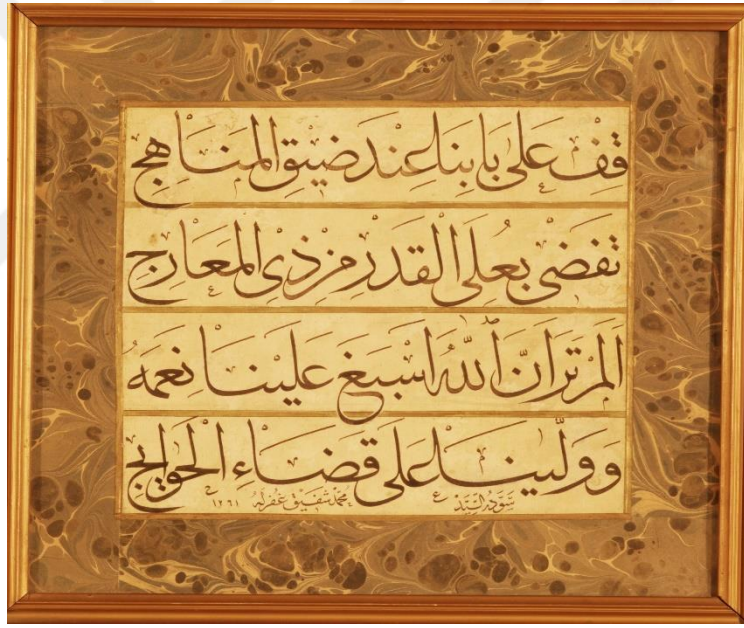 قِفْ عَلٰى بَابِنَا عِنْدَ ضِيقِ الْمَنَاهِجِ
تفضى بعلى القدر من ذى المعارج
الم تر ان الله اسبغ علينا نعمه
وولينا على قضاء الحوايج
سوده السيد محمد شفيق غفر له ١٢٦١